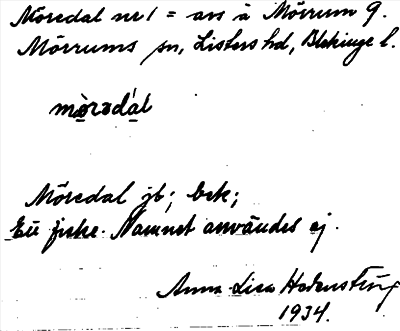 Möredal nr 1 = avs å Mörrum 9.
Mörrums sn, Listers hd, Blekinge l.
mòrədál
Möredal jb; bek;
Ett fiske. Namnet användes ej.
Anna-Lisa
1934.